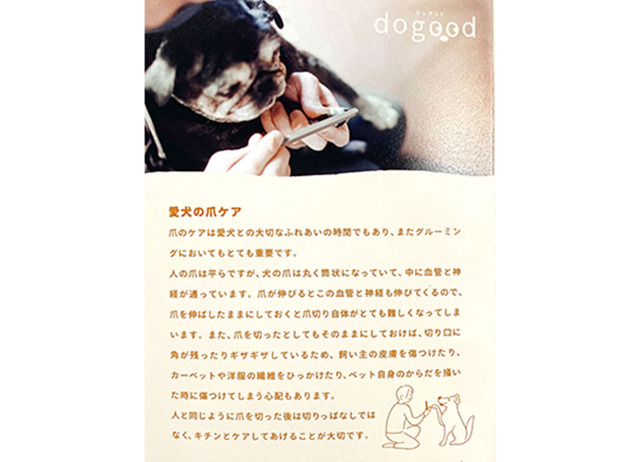 ドッグッド
dogood
愛犬の爪ケア
爪のケアは愛犬との大切なふれあいの時間でもあり、またグルーミン
グにおいてもとても重要です。
人の爪は平らですが、犬の爪は丸く筒状になっていて、中に血管と神
経が通っています。爪が伸びるとこの血管と神経も伸びてくるので、
爪を伸ばしたままにしておくと爪切り自体がとても難しくなってしま
います。また、爪を切ったとしてもそのままにしておけば、切り口に
角が残ったりギザギザしているため、飼い主の皮膚を傷つけたり、
カーペットや洋服の繊維をひっかけたり、ペット自身のからだを掻い
た時に傷つけてしまう心配もあります。
人と同じように爪を切った後は切りっぱなしでは
なく、キチンとケアしてあげることが大切です。